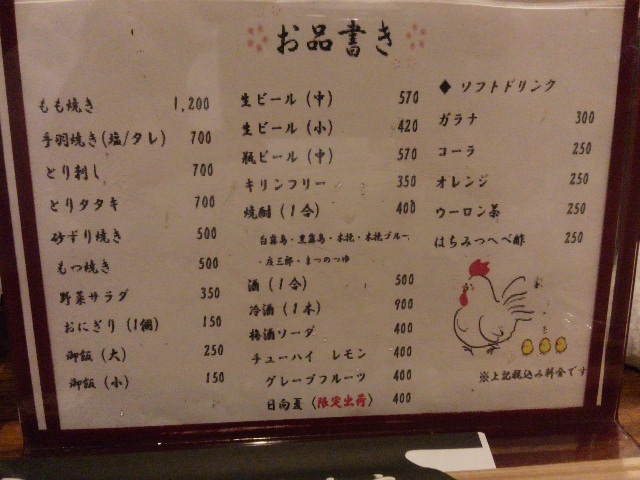 お品書き
もも焼き 1,200
手羽焼き(塩/タレ) 700
とり刺し 700
とりタタキ 700
砂ずり焼き 500
もつ焼き 500
野菜サラダ 350
おにぎり(1個) 150
御飯(大) 250
御飯(小) 150
生ビール(中) 570
生ビール(小) 420
瓶ビール(中) 570
キリンフリー 350
焼酎(1合) 400
白霧島・黒霧島・木挽・木挽ブルー
・庄三郎・まつのつゆ
酒(1合) 500
冷酒(1本) 900
梅酒ソーダ 400
チューハイ レモン 400
グレープフルーツ 400
日向夏〈限定出荷〉 400
◆ ソフトドリンク
ガラナ 300
コーラ 250
オレンジ 250
ウーロン茶 250
はちみつへべ酢 250
※上記税込み料金です